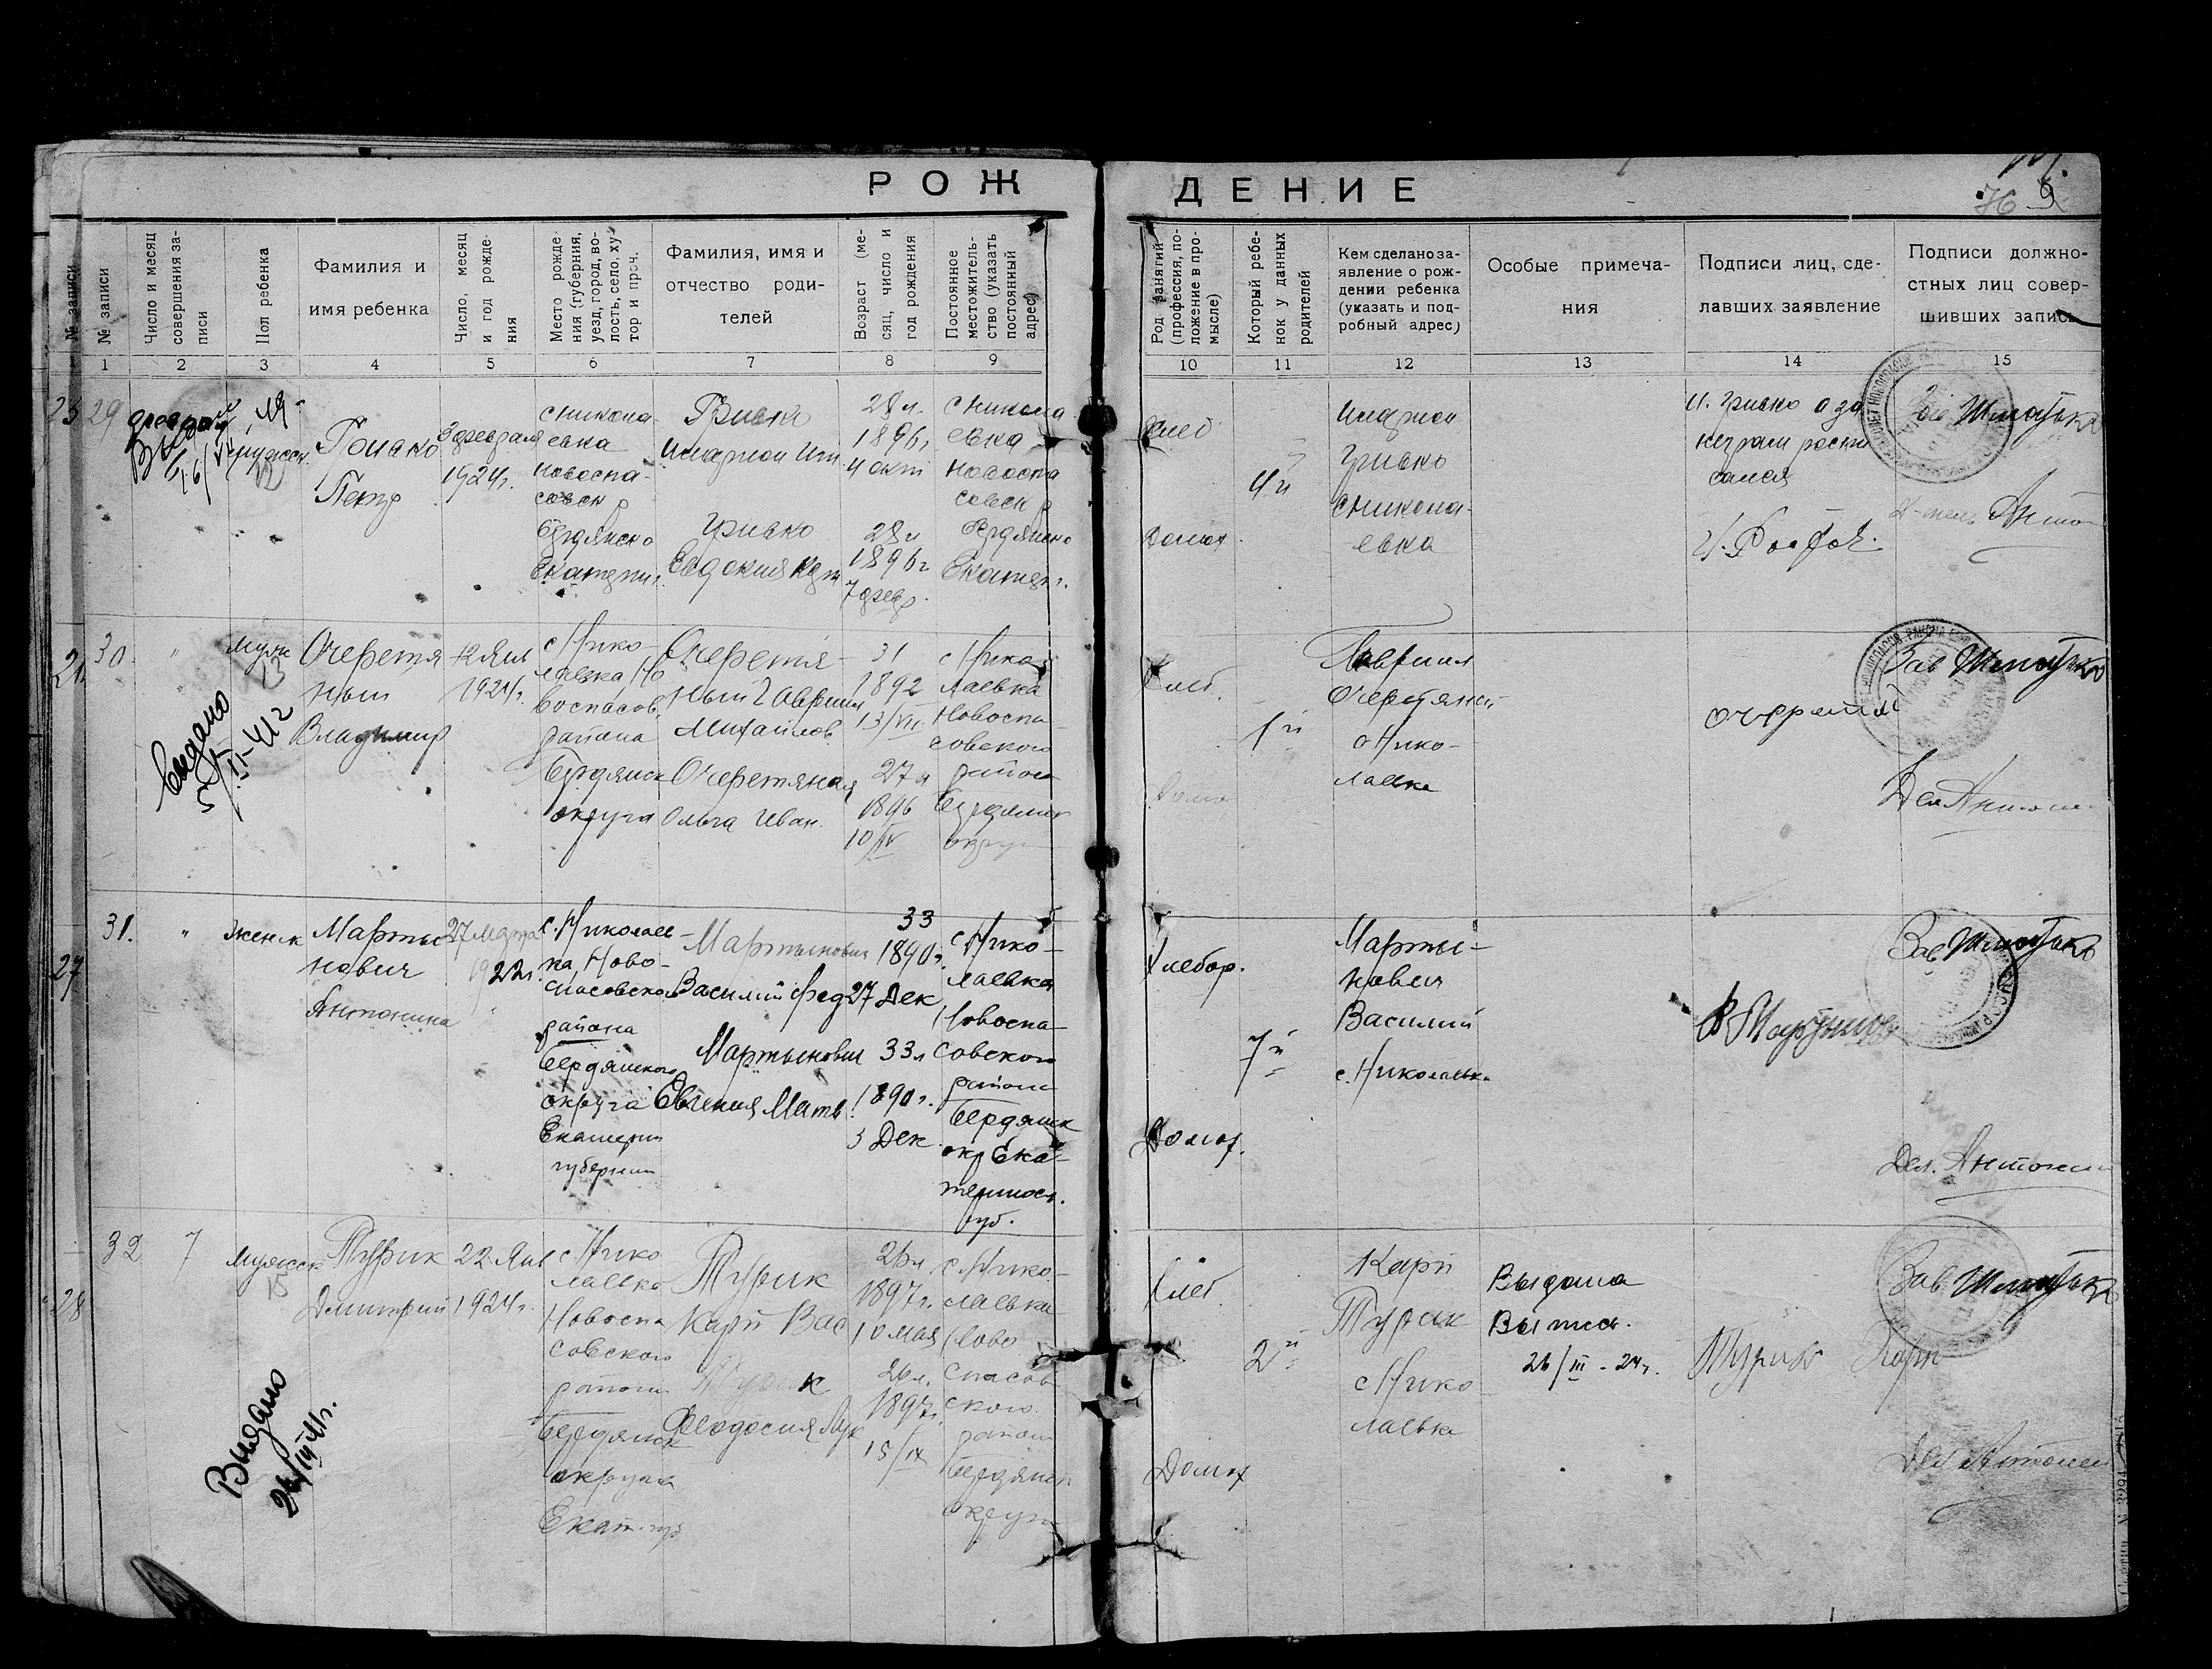 РОЖ
ДЕНИЕ
76 9
№ записи
№ записи
Число и месяц совершения записи
Пол ребенка
Фамилия и
имя ребенка
Число, месяц и год рождения
Место рождения (губерния, уезд, город, волость, село, хутор и проч.
Фамилия, имя и
отчество роди-
телей
Возраст (месяц, число и год рождения
Постоянное местожительство (указать постоянный адрес)
Род занятий (профессия, положение в промысле)
Который ребенок у данных родителей
Кем сделано за-
явление о рож-
дении ребенка
(указать и под-
робный адрес)
Особые примеча-
ния
Подписи лиц, сде-
лавших заявление
Подписи должно-
стных лиц совер-
шивших запись
1 2 3 4 5 6 7 8 9 10 11 12 13 14 15
29
Гривко
Петр
3 февраля
1924 г.
с Никола-
евка
Новоспа-
совск р
Бердянско
Гривко
Иларион
Гривко
Евдокия
28 л.
1896 г
4 окт
28 л
1896 г
7 февр.
с Никола
евка
Новоспа
совск р
Бердянско
Хлеб
Домох.
4й
Иларион
Гривко
с Никола-
евка
И. Гривко а за
неграм роспи
сался
Зав
30
"
муж
13
Очеретя
ный
Владимир
12 Янв
1924 г.
с Нико-
лаевка Но
воспасов.
района
Бердянск
округа
Очеретя-
ный Гавриил
Михайлов
Очеретяная
Ольга Иван.
31
1892
13/VII
27 л
1896
10/IV
с Нико
лаевка
Новоспа
совского
район
Бердянск
округ
Хлеб.
Домо
1й
Гавриил
Очеретяный
с Нико-
лаевка
Зав
Выдано
5/II-41 г
31.
"
женск
27
Марты
нович
Антонина
27 Марта
1922 г.
с. Николаев-
ка, Ново-
спасовского
района
Бердянского
округа
Екатерин
губернии
Мартынович
Василий Фед
Мартынович
Евгения Матв.
33
1890 г.
27 Дек
33 л
1890 г.
3 Дек.
с. Нико-
лаевка
Новоспа-
совского
района
Бердянск
окр Ека-
териносл.
губ.
Хлебор.
Домох.
7й
Марты-
нович
Василий
с. Николаевка
Зав
Дел. Антонен
32
7
мужск
15
28
Турик
Дмитрий
22 Янв
1924 г.
с. Нико
лаевка
Новоспа
совского
района
Бердянск
округа
Екат. губ
Турик
Карп Вас
Турик
Феодосия Лук
26 л.
1897 г.
10 мая
26 л.
1897 г.
15/IX
с. Нико-
лаевка
Ново
спасов
ского
район
Бердянск
округ
Хлеб.
Домох
2й
Карп
Турик
с Нико
лаевка
Выдана
Выпись.
26/III-24 г.
Турик Карп
Зав.
Дел Антонен
Выдано
26/III 41 г.